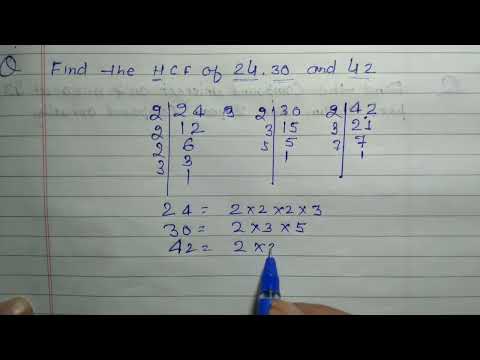 Q Find the HCF of 24, 30 and 42
2 24 2 30 2 42
2 12 3 15 3 21
2 6 5 5 7 7
3 3 1 1
1
24 = 2×2×2×3
30 = 2×3×5
42 = 2×